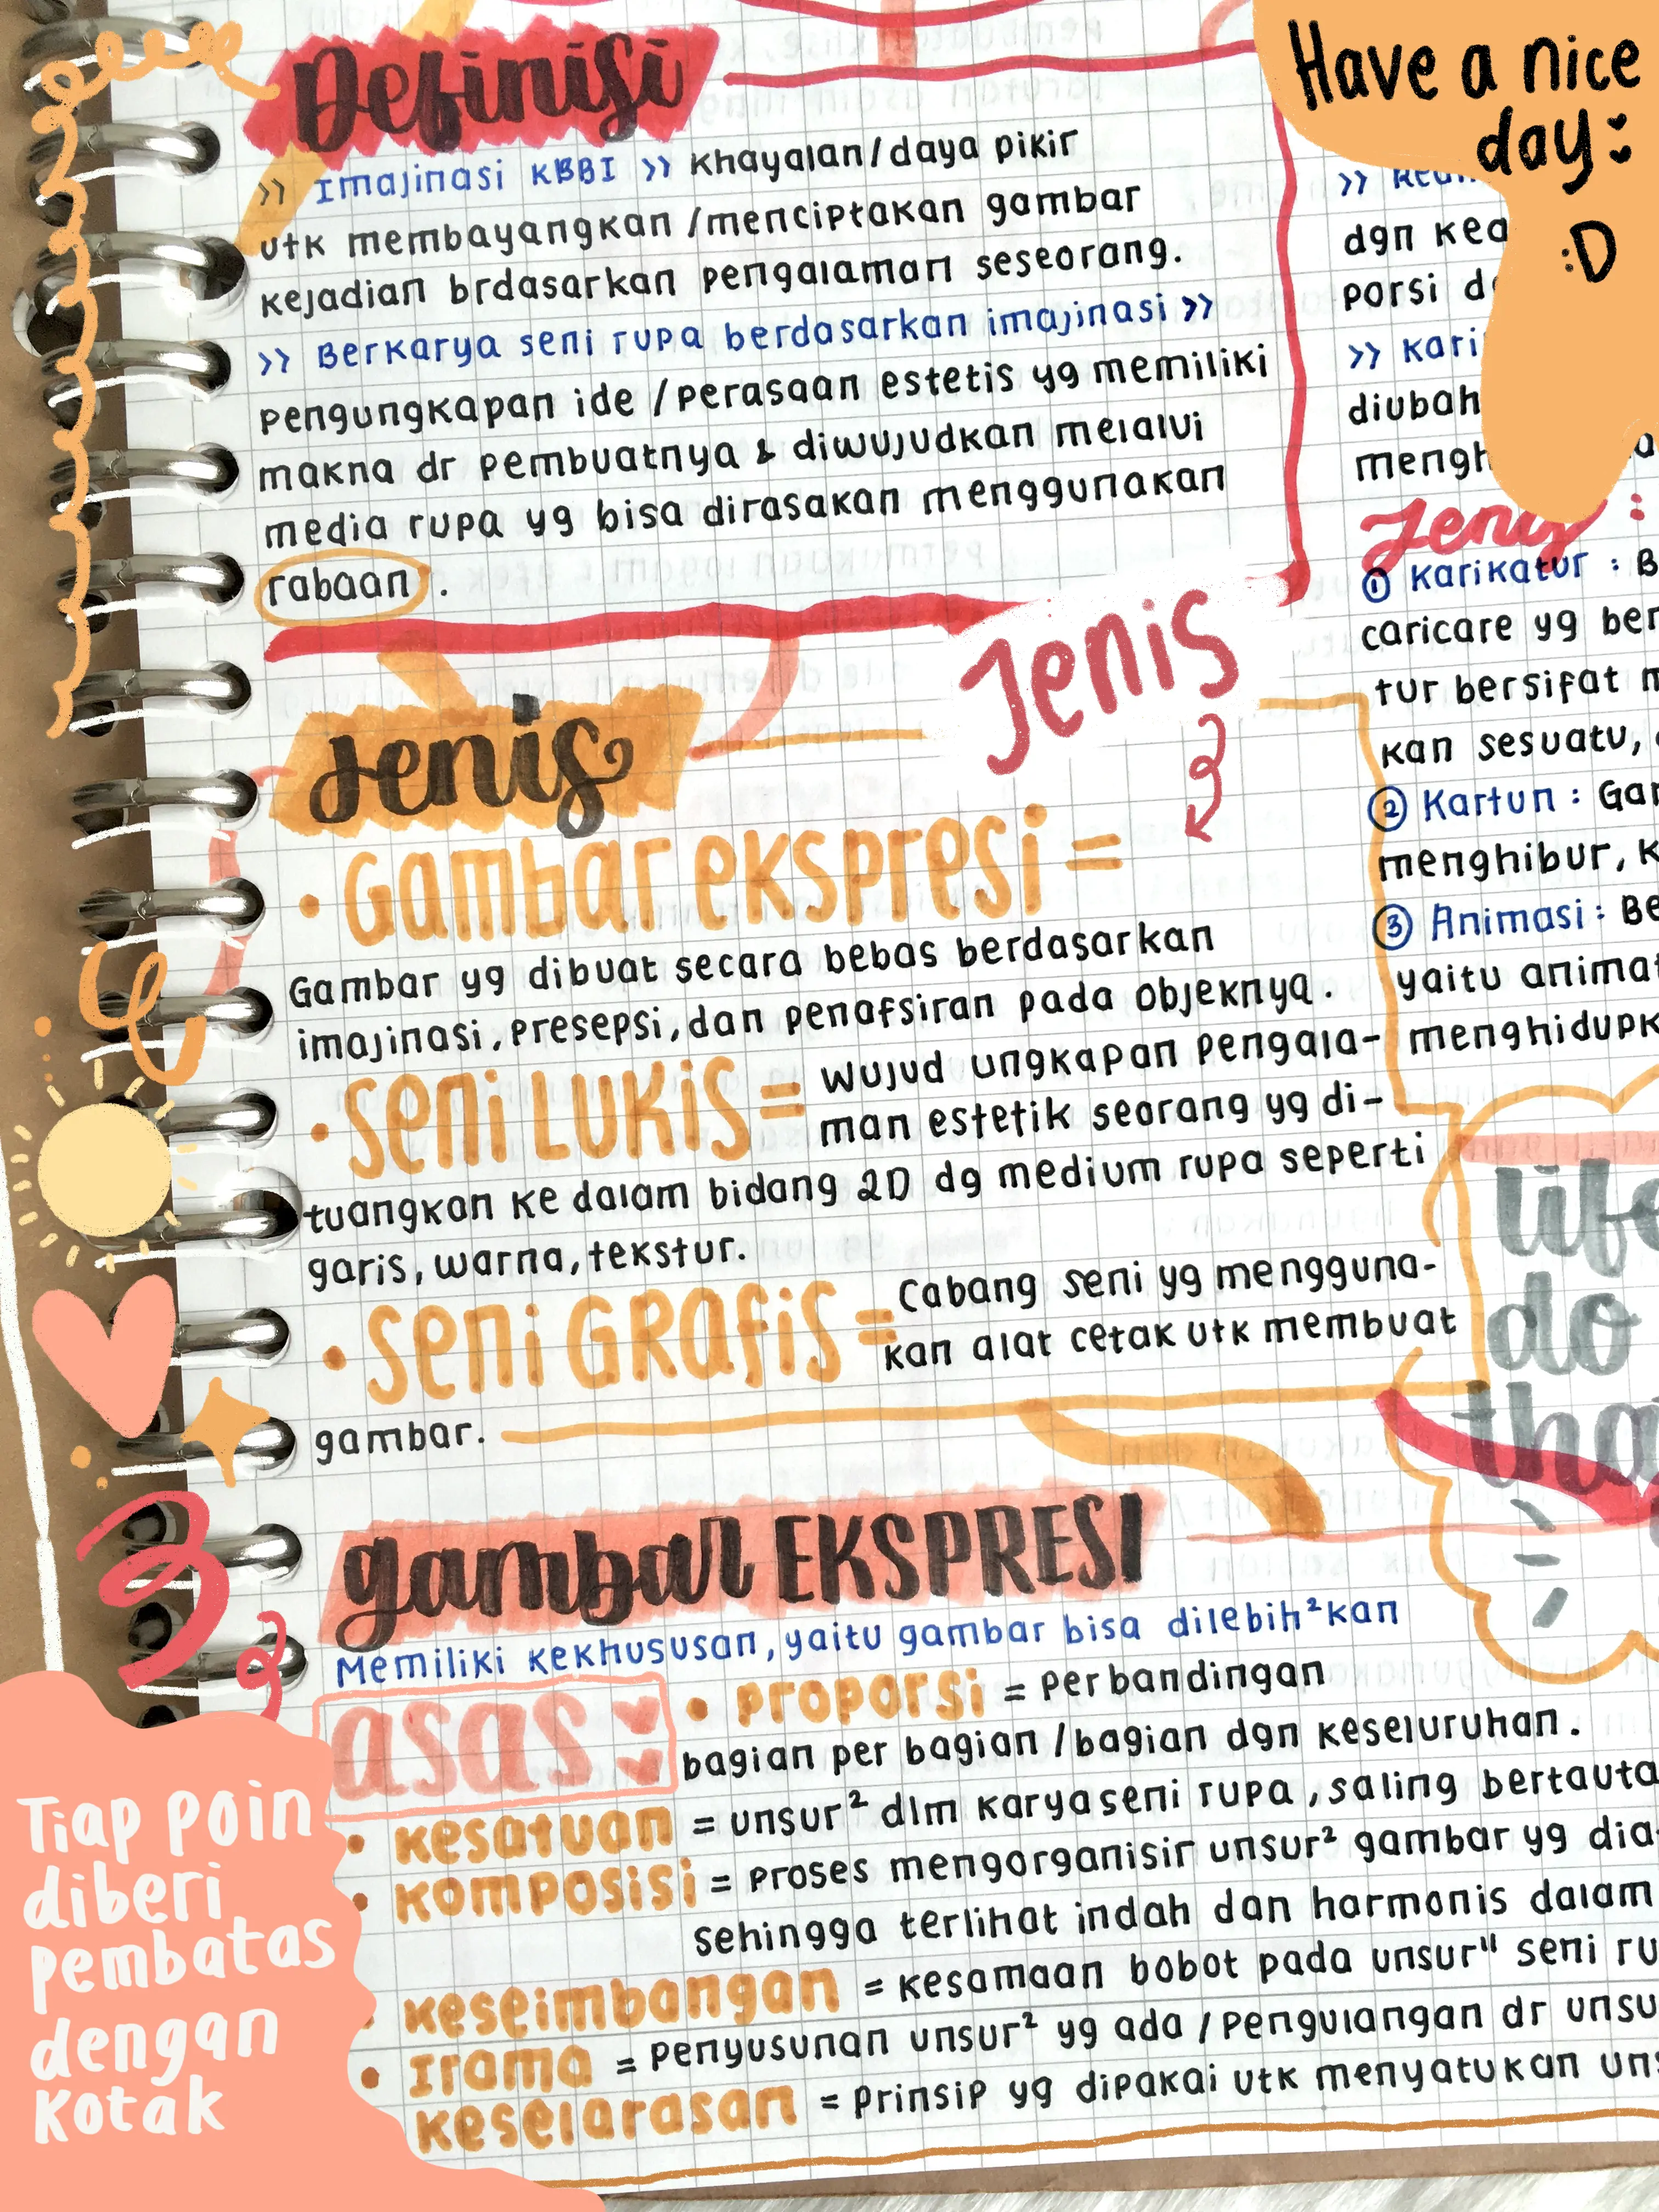 Definisi
>> Imajinasi KBBI >> Khayalan/daya pikir
utk membayangkan/menciptakan gambar
kejadian brdasarkan pengalaman seseorang.
>> Berkarya seni rupa berdasarkan imajinasi >>
pengungkapan ide/perasaan estetis yg memiliki
makna dr pembuatnya & diwujudkan melalui
media rupa yg bisa dirasakan menggunakan
rabaan.
Jenis
Jenis
• Gambar ekspresi =
Gambar yg dibuat secara bebas berdasarkan
imajinasi, presepsi, dan penafsiran pada objeknya.
• Seni Lukis = wujud ungkapan pengala-
man estetik seorang yg di-
tuangkan ke dalam bidang 2D dg medium rupa seperti
garis, warna, tekstur.
• Seni Grafis = Cabang seni yg mengguna-
kan alat cetak utk membuat
gambar.
gambar EKSPRESI
Memiliki kekhususan, yaitu gambar bisa dilebih²kan
asas
• proporsi = perbandingan
bagian per bagian/bagian dgn keseluruhan.
• kesatuan = unsur² dlm karya seni rupa, saling bertauta
• komposisi = proses mengorganisir unsur² gambar yg dia
sehingga terlihat indah dan harmonis dalam
keseimbangan = kesamaan bobot pada unsur" seni ru
• Irama = penyusunan unsur² yg ada/pengulangan dr unsu
keselarasan = prinsip yg dipakai utk menyatukan uns
Have a nice
day
:D
dgn kea
porsi d
>> Kari
diubah
mengh
Jenis :
① Karikatur : B
caricare yg ber
tur bersifat m
kan sesuatu,
② Kartun : Gam
menghibur, k
③ Animasi : Be
yaitu animat
menghidupk
life
do
tha
Tiap poin
diberi
pembatas
dengan
kotak